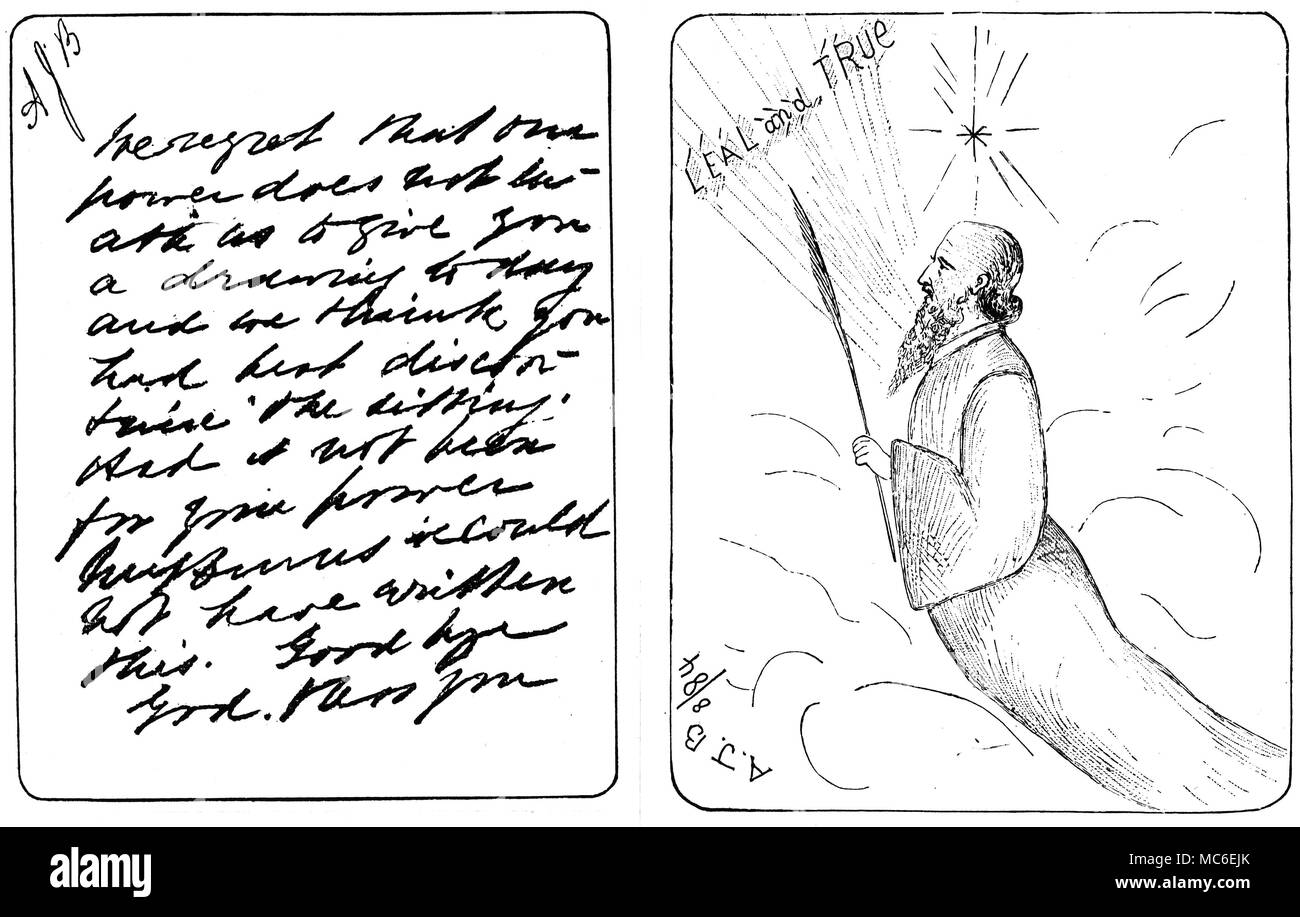 AJB
We regret that our
power does not en-
able us to give you
a drawing to day
and we think you
had best discon-
tinue the sitting.
Had it not been
for your power
Burns we could
not have written
this. Good bye
God. bless you
LEAL and TRUE
A.J.B 8/8/84
alamy
Image ID: MC6EJK
www.alamy.com